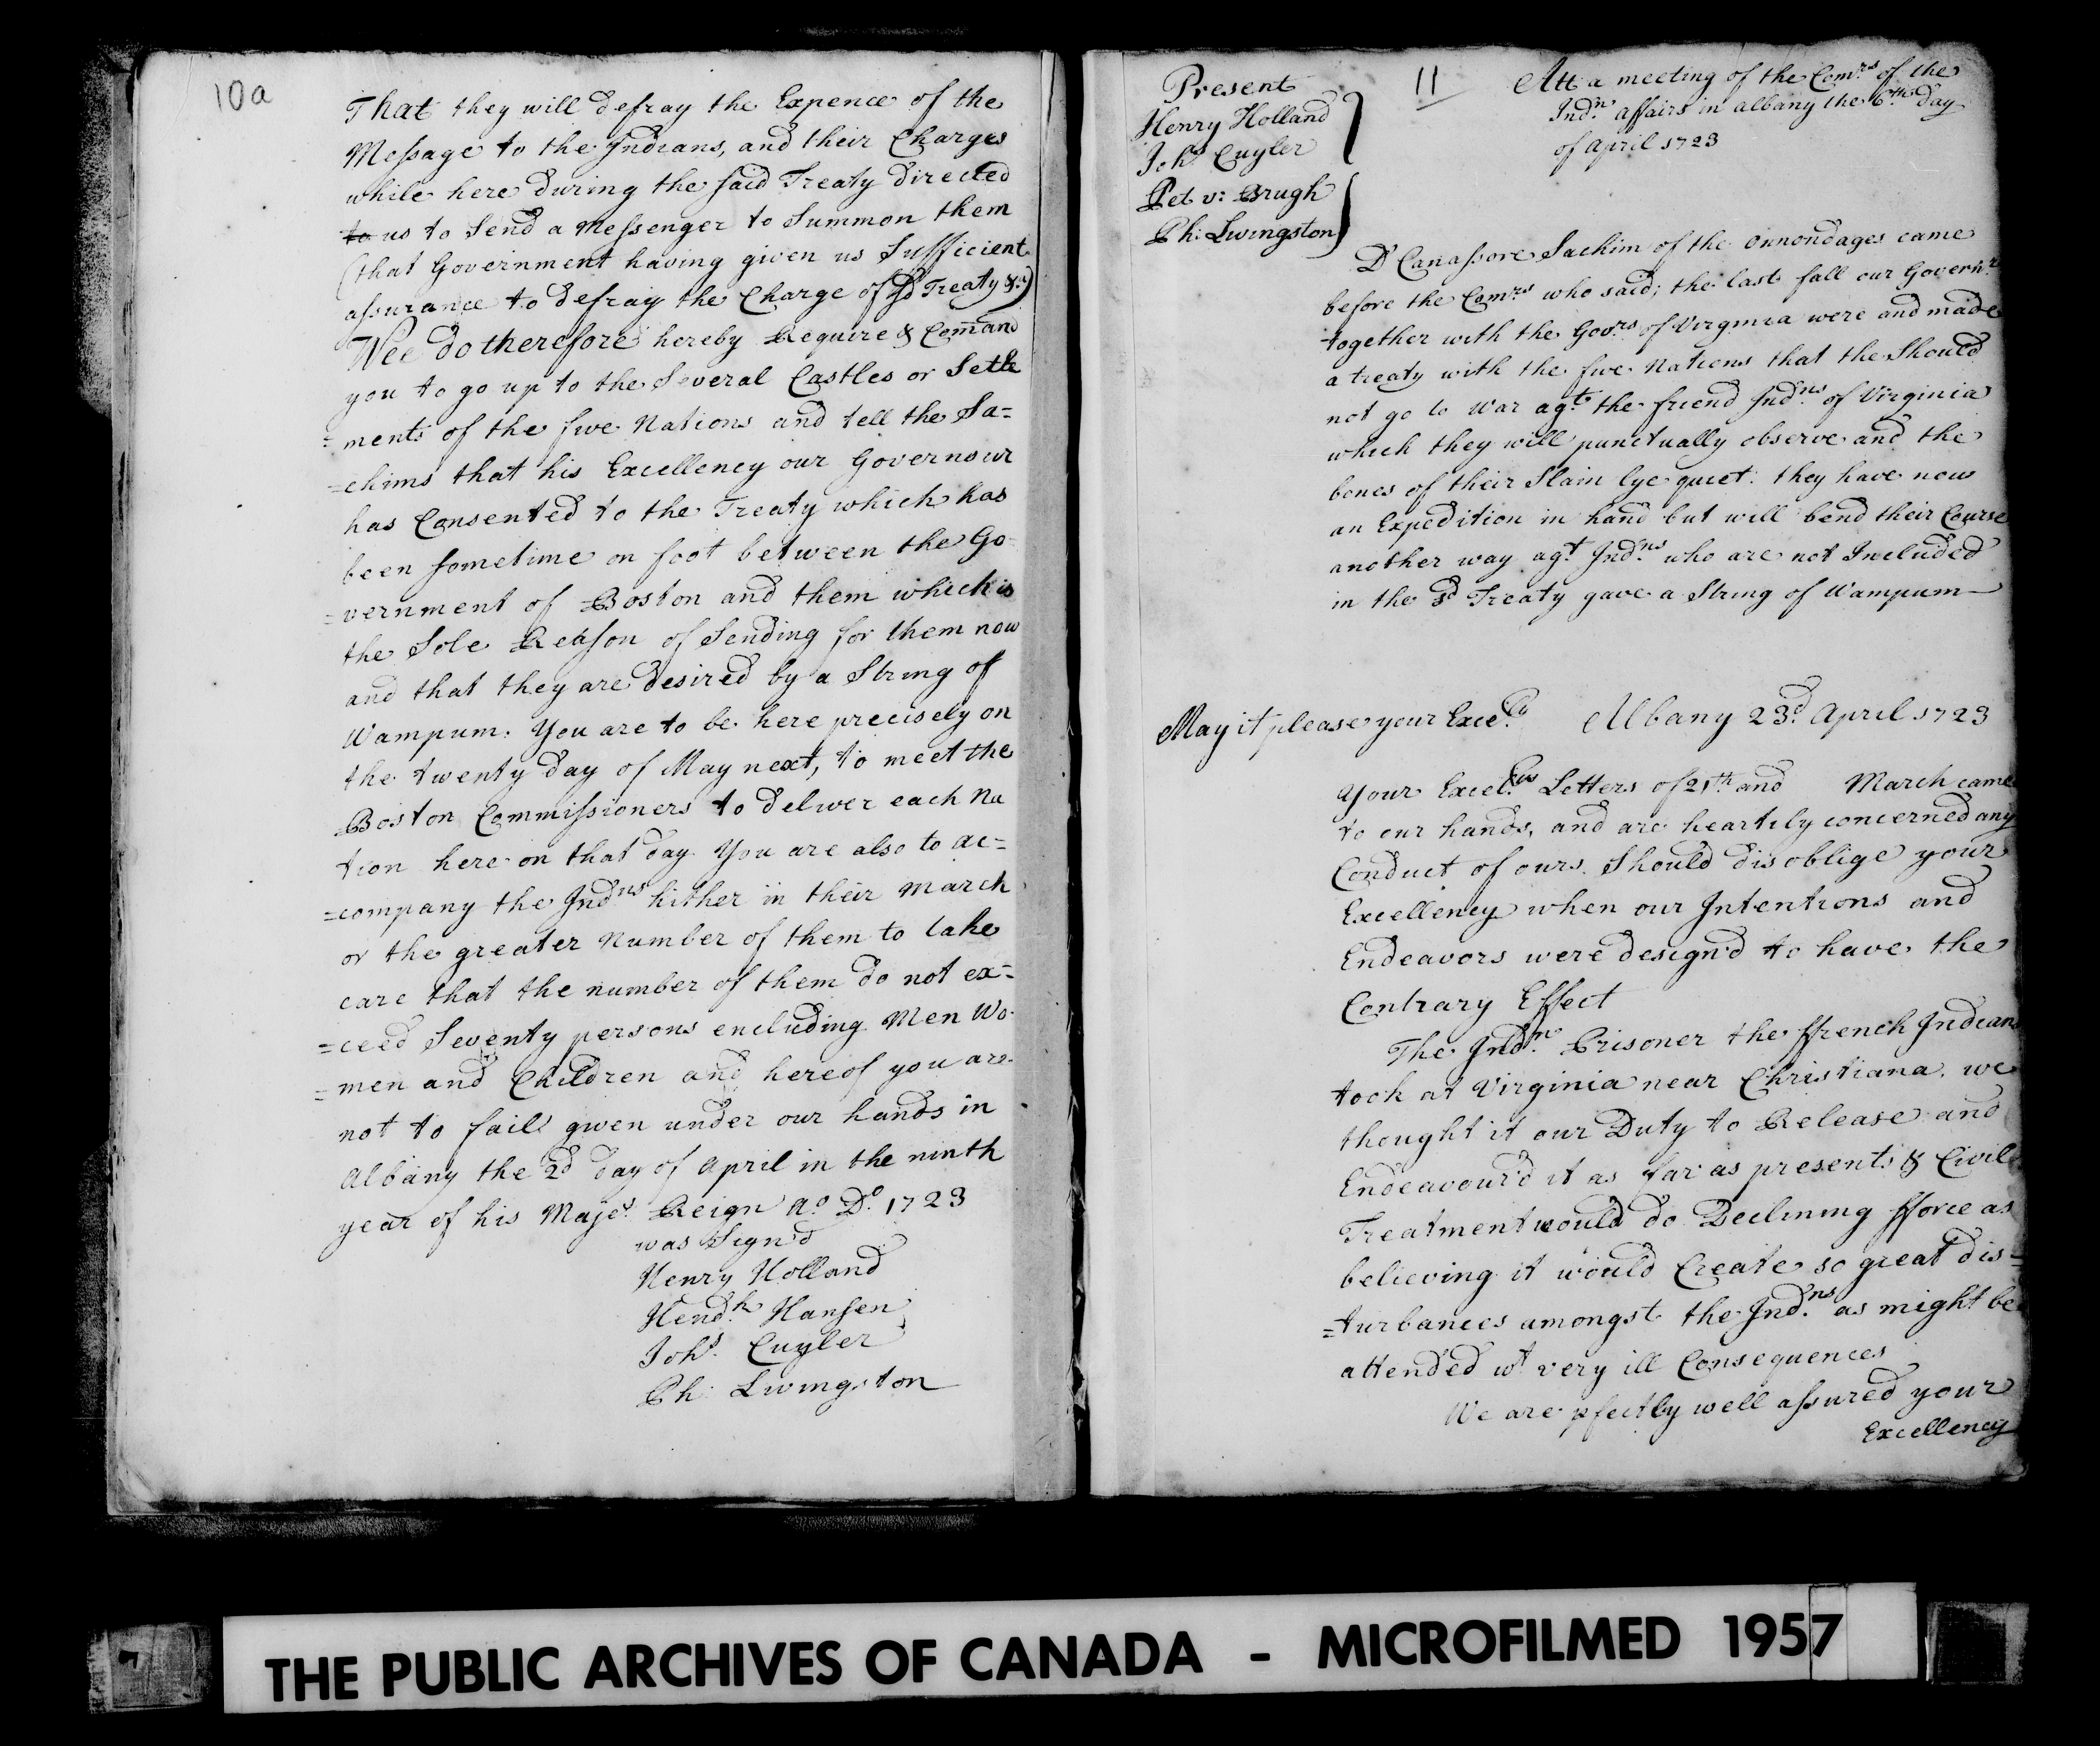 10a
That they will defray the Expence of the
Message to the Indians, and their Charges
while here during the said Treaty directed
to us to Send a Messenger to Summon them
(that Government having given us Sufficient
assurance to defray the Charge of sd Treaty &c)
Wee do therefore hereby Require & Comand
you to go up to the Several Castles or Setle
=ments of the five Nations and tell the Sa=
=chims that his Excellency our Governour
has Consented to the Treaty which has
been sometime on foot between the Go
=vernment of Boston and them which is
the Sole Reason of Sending for them now
and that they are desired by a String of
Wampum. You are to be here precisely on
the twenty day of May next, to meet the
Boston Commissioners to deliver each Na
tion here on that day. You are also to ac=
=company the Indns hither in their March
or the greater Number of them to take
care that the number of them do not ex=
=ceed Seventy persons encluding Men Wo
=men and Children and hereof you are
not to fail given under our hands in
Albany the 2d day of April in the ninth
year of his Majes. Reign Ao. Do. 1723
was Sign'd
Henry Holland
Hendk. Hansen
Johs. Cuyler
Ph: Livingston
Present
Henry Holland
Johs Cuyler
Pet v: Brugh
Ph: Livingston
11
Att a meeting of the Comrs of the
Indn. affairs in albany the 6th day
of April 1723
D'Canassore Sachim of the onnondages came
before the Comrs who said; the last fall our Governr.
together with the Govrs of Virginia were and made
a treaty with the five Nations that the Should
not go to War agt. the friend Indns. of Virginia
which they will punctually observe and the
bones of their Slain lye quiet: they have now
an Expedition in hand but will bend their Course
another way agt. Indns. who are not Included
in the sd Treaty gave a String of Wampum
May it please your Excely Albany 23d. April 1723
Your Excelcys Letters of 21th and March came
to our hands, and are heartily concerned any
Conduct of ours Should disoblige your
Excellency when our Intentions and
Endeavors were design'd to have the
Contrary Effect
The Indn. Prisoner the ffrench Indians
took at Virginia near Christiana. we
thought it our Duty to Release and
Endeavour'd it as far as presents & Civil
Treatment would do Declining fforce as
believing it would Create so great dis=
=turbances amongst the Indns. as might be
attended wt very ill Consequences
We are pfectly well assured your
Excellency
THE PUBLIC ARCHIVES OF CANADA - MICROFILMED 1957